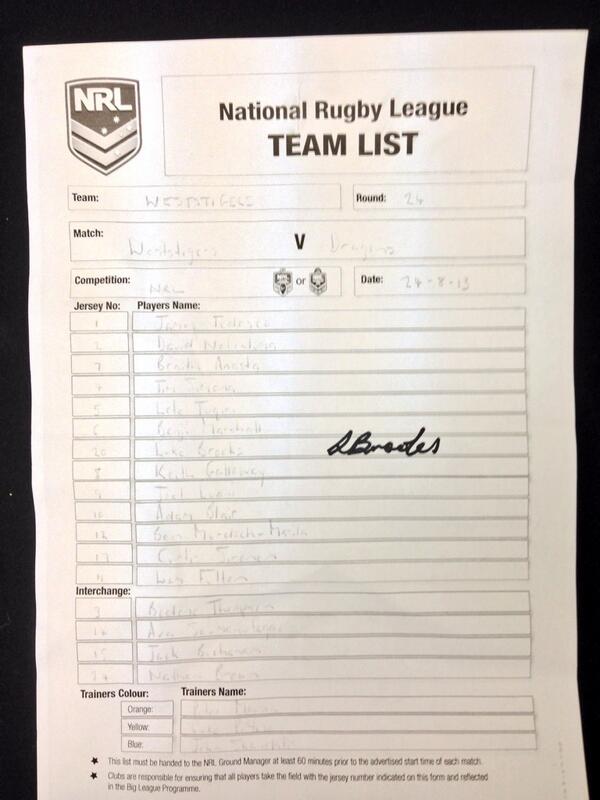 NRL
National Rugby League
TEAM LIST
Team: WESTSTIGERS Round: 24
Match: Weststigers V Dragons
Competition: NRL or Date: 24-8-13
Jersey No: Players Name:
1 James Tedesco
2 David Nofoaluma
7 Braith Anasta
4 Tim Simona
5
6 Benji Marshall
20 Luke Brooks LBrooks
8 Keith Galloway
9 Joel Luani
10 Adam Blair
12 Ben Murdoch-Masila
13 Curtis Sironen
11 Liam Fulton
Interchange:
3 Blake
14 Ava Seumanufagai
15 Jack Buchanan
Nathan Brown
Trainers Colour: Trainers Name:
Orange:
Yellow:
Blue:
★ This list must be handed to the NRL Ground Manager at least 60 minutes prior to the advertised start time of each match.
★ Clubs are responsible for ensuring that all players take the field with the jersey number indicated on this form and reflected
in the Big League Programme.